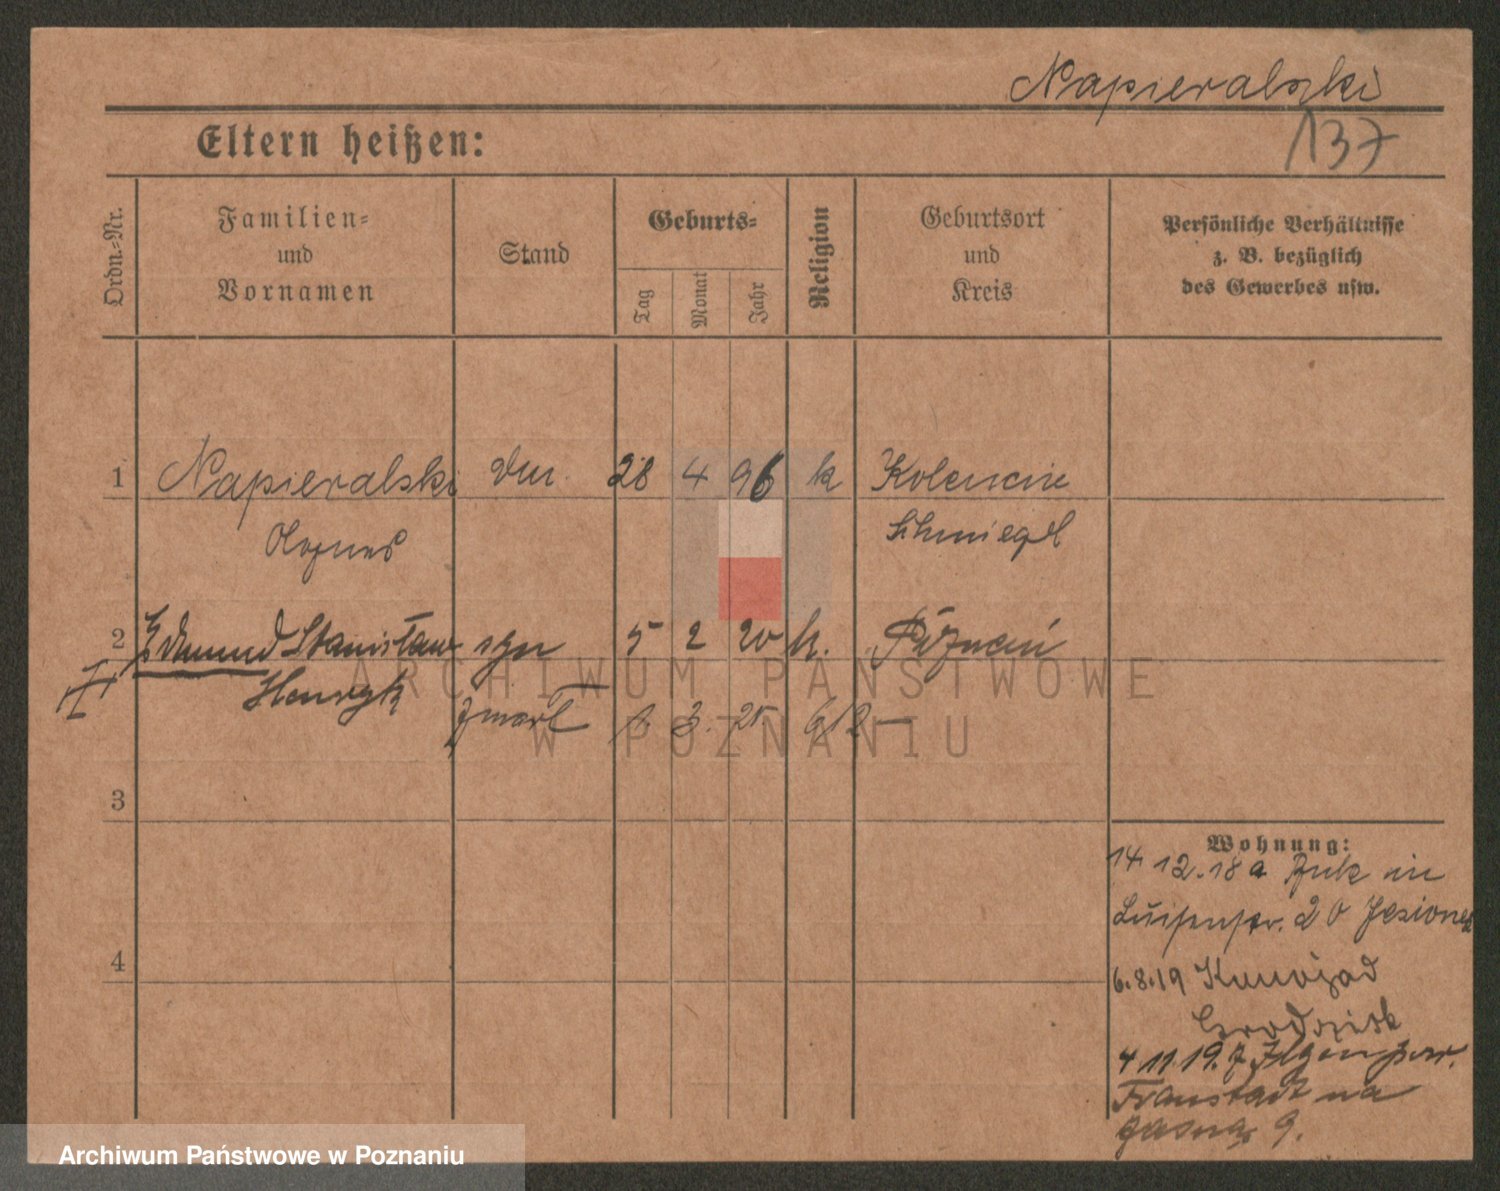 Napieralski
137
Eltern heißen:
Ordn.=Nr.
Familien=
und
Vornamen
Stand
Geburts=
Tag
Monat
Jahr
Religion
Geburtsort
und
Kreis
Persönliche Verhältnisse
z. B. bezüglich
des Gewerbes usw.
1 Napieralski 28 4 96 k
Agnes Schmiegel
2 Edmund Stanisław syn 5 2 20 k. Poznań
Henryk zmarł 3. 25.
ARCHIWUM PAŃSTWOWE
W POZNANIU
3
4
Wohnung:
14 12.18 a in
Luisenstr. 20
6.8.19
Grodzisk
4 11.19. z
Fraustadt na
9.
Archiwum Państwowe w Poznaniu